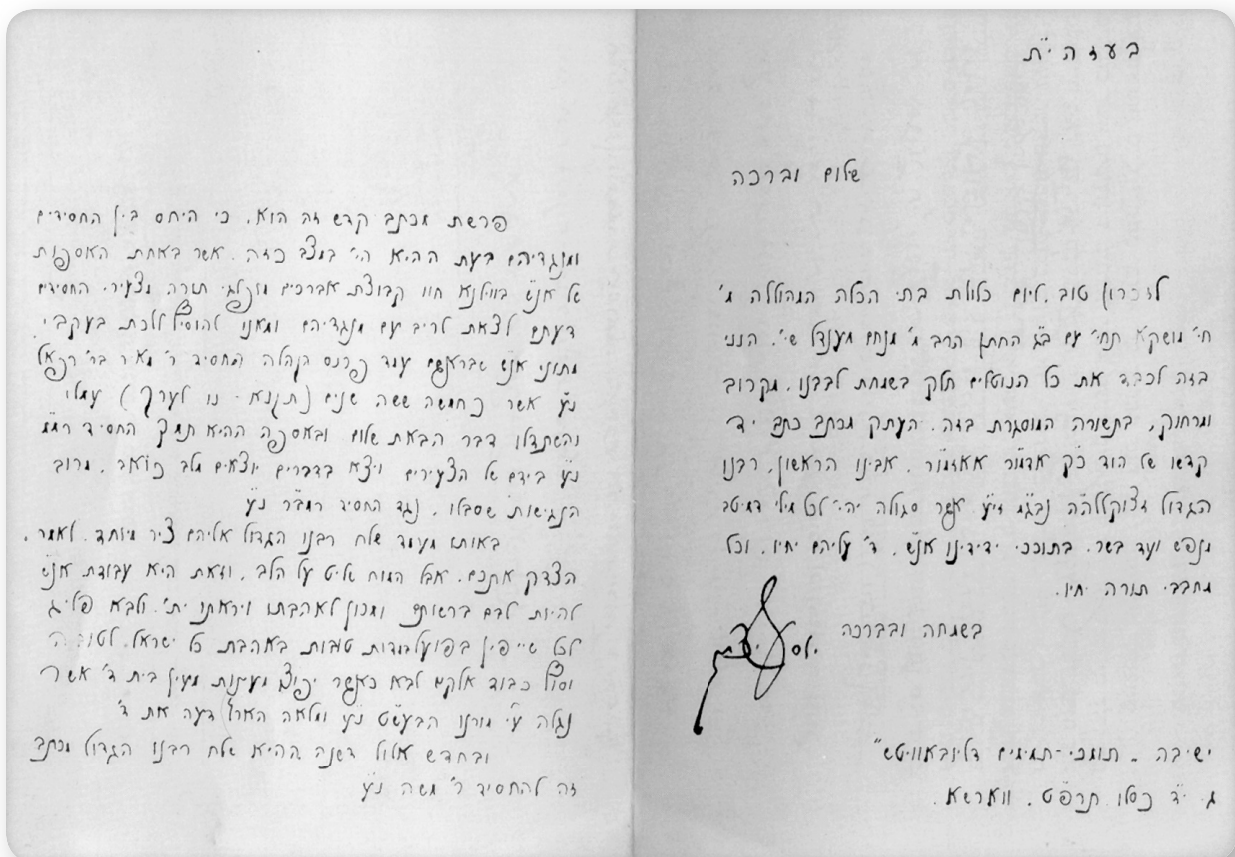 בעזהי״ת
שלום וברכה
לזכרון טוב, ליום כלולת בתי הכלה המהוללה מ׳
חי׳ מושקא תחי׳ עם ב״ג החתן הרב מ׳ מנחם מענדל שי׳, הנני
בזה לכבד את כל הנוטלים חלק בשמחת לבבנו, מקרוב
ומרחוק, בתשורה המוסגרת בזה, העתק מכתב כתב יד
קדשו של הוד כ״ק אדמו״ר אאזמו״ר, אבינו הראשון, רבנו
הגדול זצוקללה״ה נבג״מ זי״ע אשר סגולה יהי׳ לכל מילי דמיטב
מנפש ועד בשר, בתוככי ידידינו אנ״ש, ד׳ עליהם יחיו, וכל
מחבבי תורה יחיו.
בשמחה ובברכה
יוסף יצחק
ישיבה - תומכי-תמימים דליובאוויטש״
ג׳ י״ד כסלו תרפ״ט, ווארשא.
פרשת מכתב קדש זה הוא, כי היחס בין החסידים
ומנגדיהם בעת ההיא הי׳ במצב כזה, אשר באחת האספות
של אנ״ש בווילנא חוו קבוצת אברכים מופלגי תורה מצעירי החסידים
דעתם לצאת לריב עם מנגדיהם ומאנו להוסיף ללכת בעקבי
מתוני אנ״ש שבראשם עמד פרנס הקהלה החסיד ר׳ מאיר בר׳ רפאל
נ״ע אשר כחמשה ששה שנים (תקנא - נו לערך) עמלו
והשתדלו דבר הבאת שלום ובאספה ההיא תמך החסיד רמ״מ
נ״ע בידם של הצעירים ויצא בדברים יוצאים מלב כואב, מרוב
הנגישות שסבלו, נגד החסיד רמב״ר נ״ע
באותו מעמד שלח רבנו הגדול אליהם ציר מיוחד, לאמר,
הצדק אתכם, אבל המוח שליט על הלב, וזאת היא עבודת אנ״ש
להיות לבם ברשותם ומכון לאהבתו ויראתו ית׳, ולבא פליג
לכל שייפין בפועל במדות טובות באהבת כל ישראל, לטובה
וסוף כבוד אלקים לבא כאשר יפוצו מעינות מעין בית ד׳ אשר
נגלה ע״י מורנו הבעש״ט נ״ע ומלאה הארץ דעה את ד׳
ובחדש אלול דשנה ההיא שלח רבנו הגדול מכתב
זה להחסיד ר׳ משה נ״ע